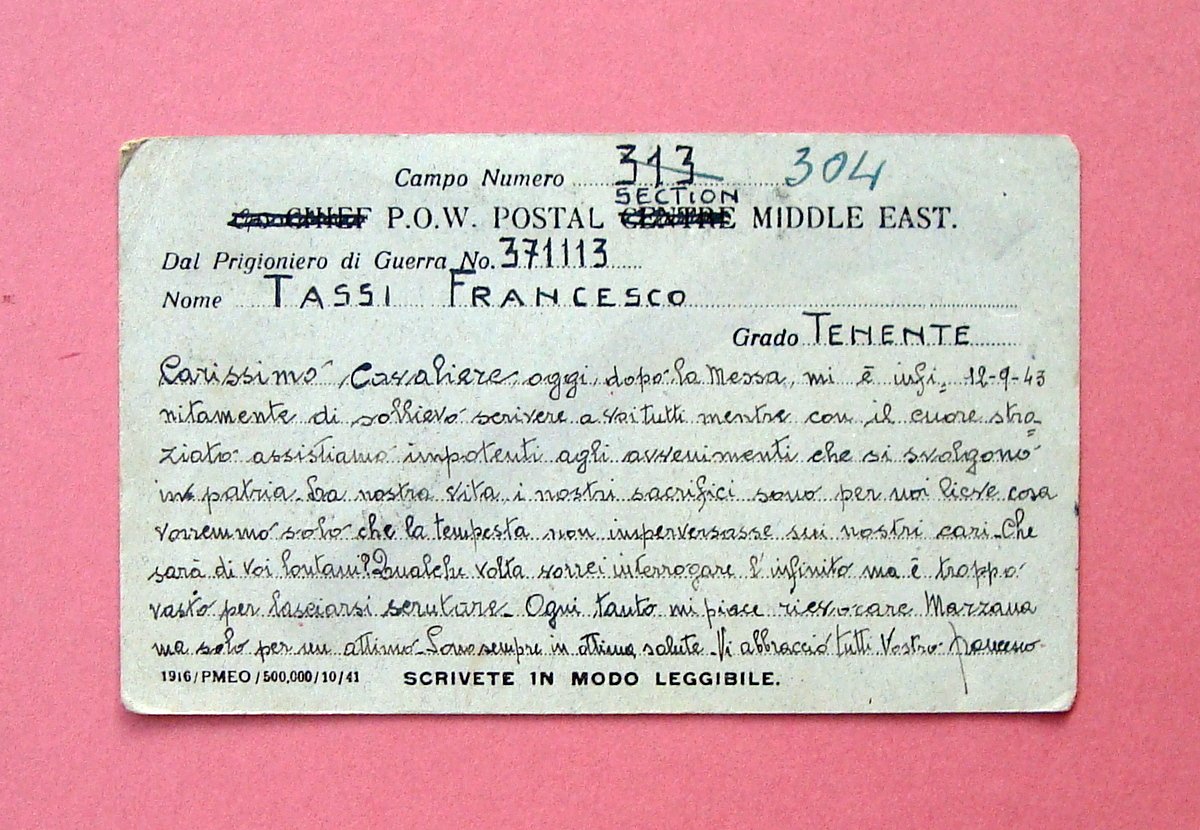 Campo Numero 313 304
SECTION
c/o CHIEF P.O.W. POSTAL CENTRE MIDDLE EAST.
Dal Prigioniero di Guerra No. 371113
Nome TASSI FRANCESCO
Grado TENENTE
Carissimo Cavaliere oggi dopo la Messa, mi è infi= 12-9-43
nitamente di sollievo scrivere a voi tutti mentre con il cuore stra=
ziato assistiamo impotenti agli avvenimenti che si svolgono
in patria. La nostra vita i nostri sacrifici sono per noi lieve cosa
vorremmo solo che la tempesta non imperversasse sui nostri cari. Che
sarà di voi lontani? Qualche volta vorrei interrogare l'infinito ma è troppo
vasto per lasciarsi scrutare. Ogni tanto mi piace rievocare Marzana
ma solo per un attimo. Sono sempre in ottima salute. Vi abbraccio tutti Vostro Francesco
1916/PMEO/500,000/10/41 SCRIVETE IN MODO LEGGIBILE.